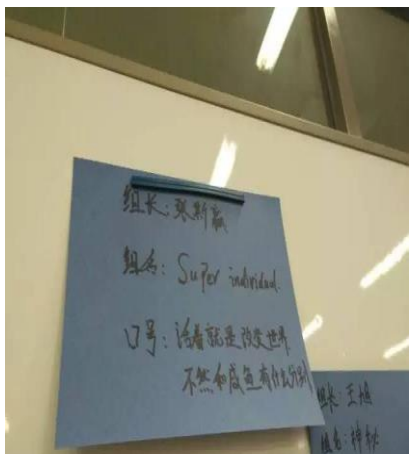 组长：张新颖
组名：Super individual.
口号：活着就是改变世界
不然和咸鱼有什么分别
组长：王旭
组名：神秘